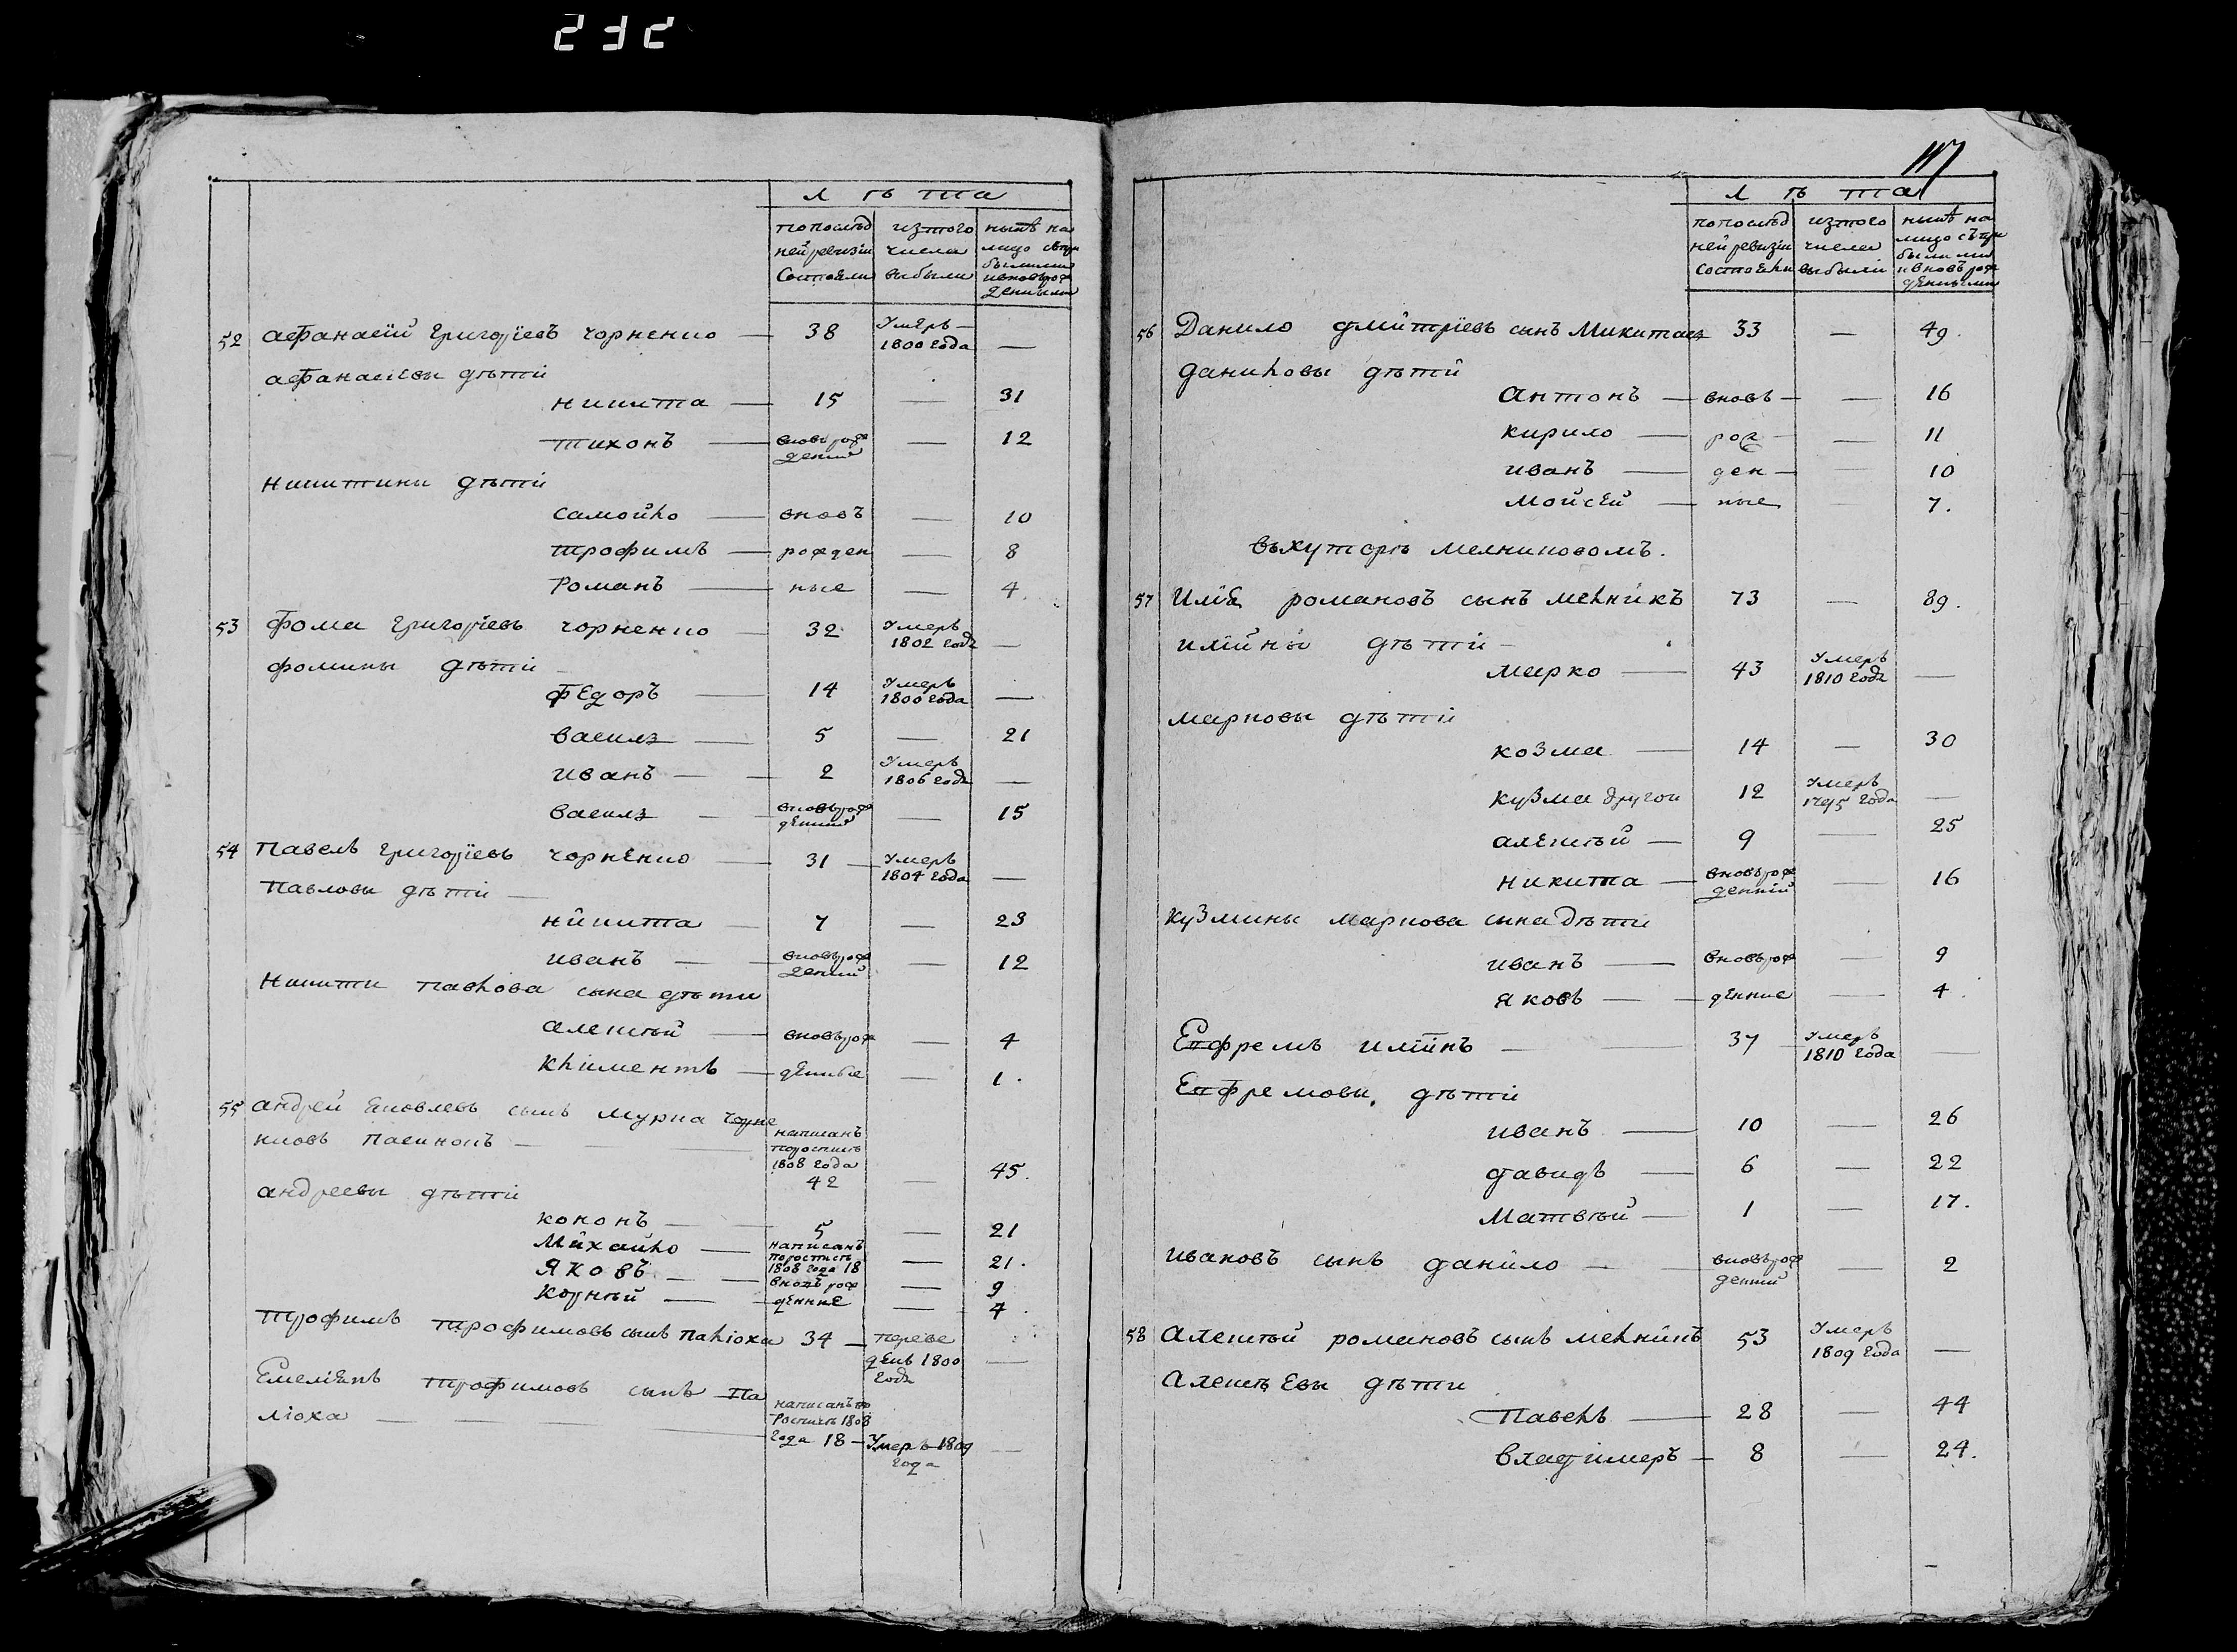 232
Л ѣ та
попослѣд изтого нынѣ на
ней ревизіи числа лицо съпри
состояли выбыли былыми
ивновърож
денными
52 афанасій григоріевъ чорненко — 38 Умеръ — 1800 года —
афанасіевы дѣти
никита — 15 — 31
тихонъ — вновърож денній — 12
никитини дѣти
самойло — вновъ — 10
трофимъ — рожден — 8
Романъ — ные — 4.
53 фома григоріевъ чорненко — 32 Умеръ 1802 года —
фомины дѣти —
фЕдоръ — 14 Умеръ 1800 года —
василь — 5 — 21
иванъ — 2 Умеръ 1806 года —
василь — вновърож денній — 15
54 павелъ григоріевъ чорненко — 31 — Умеръ 1804 года —
павловы дѣти —
никита — 7 — 23
иванъ — вновърож денній — 12
никити павлова сына дѣти
алексѣй — вновърож — 4
климентъ — денные — 1.
55 андрей яковлевъ сынъ мурка чорне
ковъ пасинокъ — написанъ поросписѣ 1808 года 42 — 45.
андреевы дѣти
кононъ — 5 — 21
Михайло — написанъ поросписѣ 1808 года 18 — 21.
яковъ — вновъ рож — 9
корнѣй — денніе — 4.
трофимъ трофимовъ сынъ паліоха 34 — переве денъ 1800 года —
Емеліянъ трофимовъ сынъ па
ліоха — написанъ по росписѣ 1808 года 18 — Умеръ 1809 года —
117
Л ѣ та
попослѣд изтого нынѣ на
ней ревизіи числа лицо съпри
состояли выбыли былыми
ивновърож
денными
56 Данило дмитріевъ сынъ Микитасъ 33 — 49.
даниловы дѣти
антонъ — вновъ — 16
кирило — рож — 11
иванъ — ден — 10
мойсЕй — ные — 7.
въхуторѣ мелниковомъ.
57 Илія романовъ сынъ мелникъ 73 — 89.
иліины дѣти —
марко — 43 Умеръ 1810 года —
марковы дѣти
козма — 14 — 30
кузма другой 12 Умеръ 1795 года —
алексѣй — 9 — 25
никита — вновърож денній — 16
кузмины маркова сына дѣти
иванъ — вновърож — 9
яковъ — денние — 4.
Епфремъ иліинъ — 37 Умеръ 1810 года —
Епфремовы дѣти
иванъ — 10 — 26
давидъ — 6 — 22
матвѣй — 1 — 17.
ивановъ сынъ данило — вновърож денній — 2
58 алексѣй романовъ сынъ мелникъ 53 Умеръ 1809 года —
алексѣЕвы дѣти
павелъ — 28 — 44
владимеръ — 8 — 24.